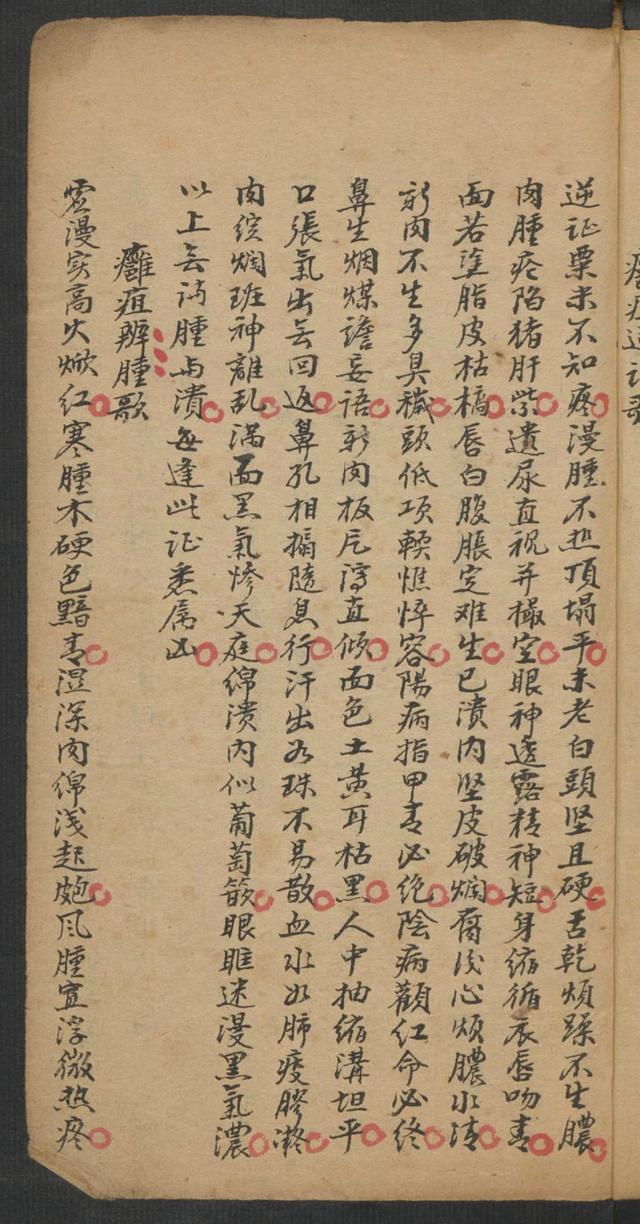 逆证粟米不知疼漫腫不热頂塌平未老白頭坚且硬舌乾煩躁不生膿
肉腫疮陷猪肝紫遺尿直視并撮空眼神透露精神短身缩循衣唇吻青
面若塗脂皮枯槁唇白腹脹定难生已潰内坚皮破烂腐後心煩膿水清
新肉不生多臭穢頭低項軟憔悴容陽病指甲青必绝陰病顴红命必终
鼻生烟煤譫妄语新肉板片泻直倾面色土黄耳枯黑人中抽缩溝坦平
口張氣出无回返鼻孔相搧隨息行汗出如珠不易散血水如肺疫膠凝
肉绽烂斑神離乱满面黑氣惨天庭绵潰内似葡萄簌眼眶迷漫黑氣濃
以上无论腫与潰每逢此证悉属凶
癰疽辨腫歌
虚漫实高火焮红寒腫木硬色黯青湿深肉绵浅起皰风腫宣浮微热疼